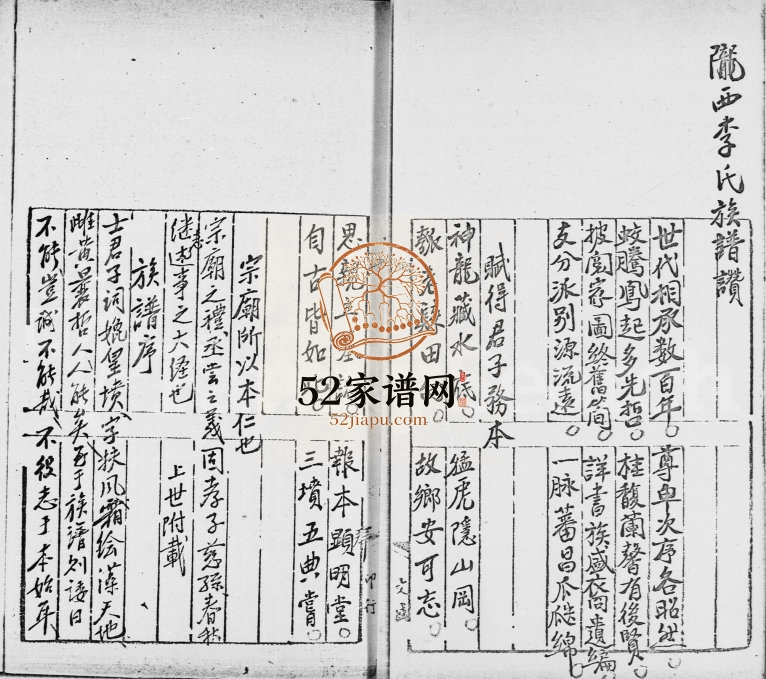 隴西李氏族譜讚
世代相承数百年。尊卑次序各昭然。
蛟騰鳳起多先哲。桂馥蘭馨有後賢
披閱家圖終舊簡。詳書族盛衣裔遺編
支分派别源流遠。一脉蕃昌瓜瓞綿。
賦得君子務本
神龍藏水 。猛虎隱山岡。
田 故鄉安可忘。
思親 報本顯明堂。
自古皆如 三墳五典嘗。
宗廟所以本仁也
宗廟之禮丞尝之義固孝子慈孫春秋
继志述事之大経也 上世附載
族譜序
士君子詞媲皇墳字扶風霜绘藻天地
雌黄曩哲人人能矣至于族譜則諉曰
不能豈誠不能哉不役志于本始耳
印行
52家谱网
52jiapu.com